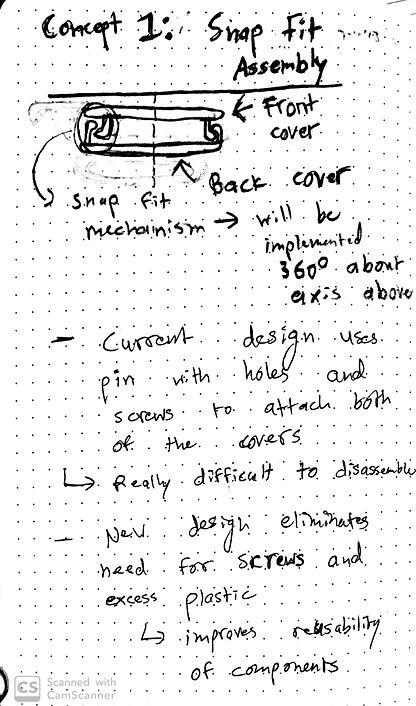 Concept 1: Snap Fit
Assembly
Front
cover
Back cover
Snap fit
mechanism → will be
implemented
360° about
axis above
- Current design uses
pin with holes and
screws to attach both
of the covers
↳ Really difficult to disassemble
- New design eliminates
need for screws and
excess plastic
↳ improves reusability
of components
CS Scanned with
CamScanner